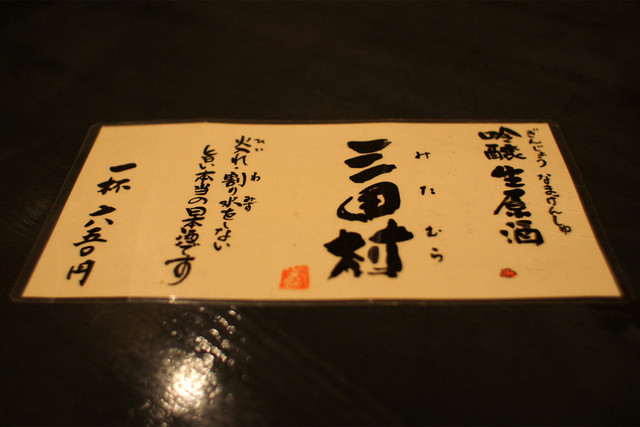 ぎんじょう なまげんしゅ
吟醸 生原酒
みたむら
三田村
ひい わりみず
火入れ・割り水をしない
旨い本当の日本酒です
一杯 六五〇円